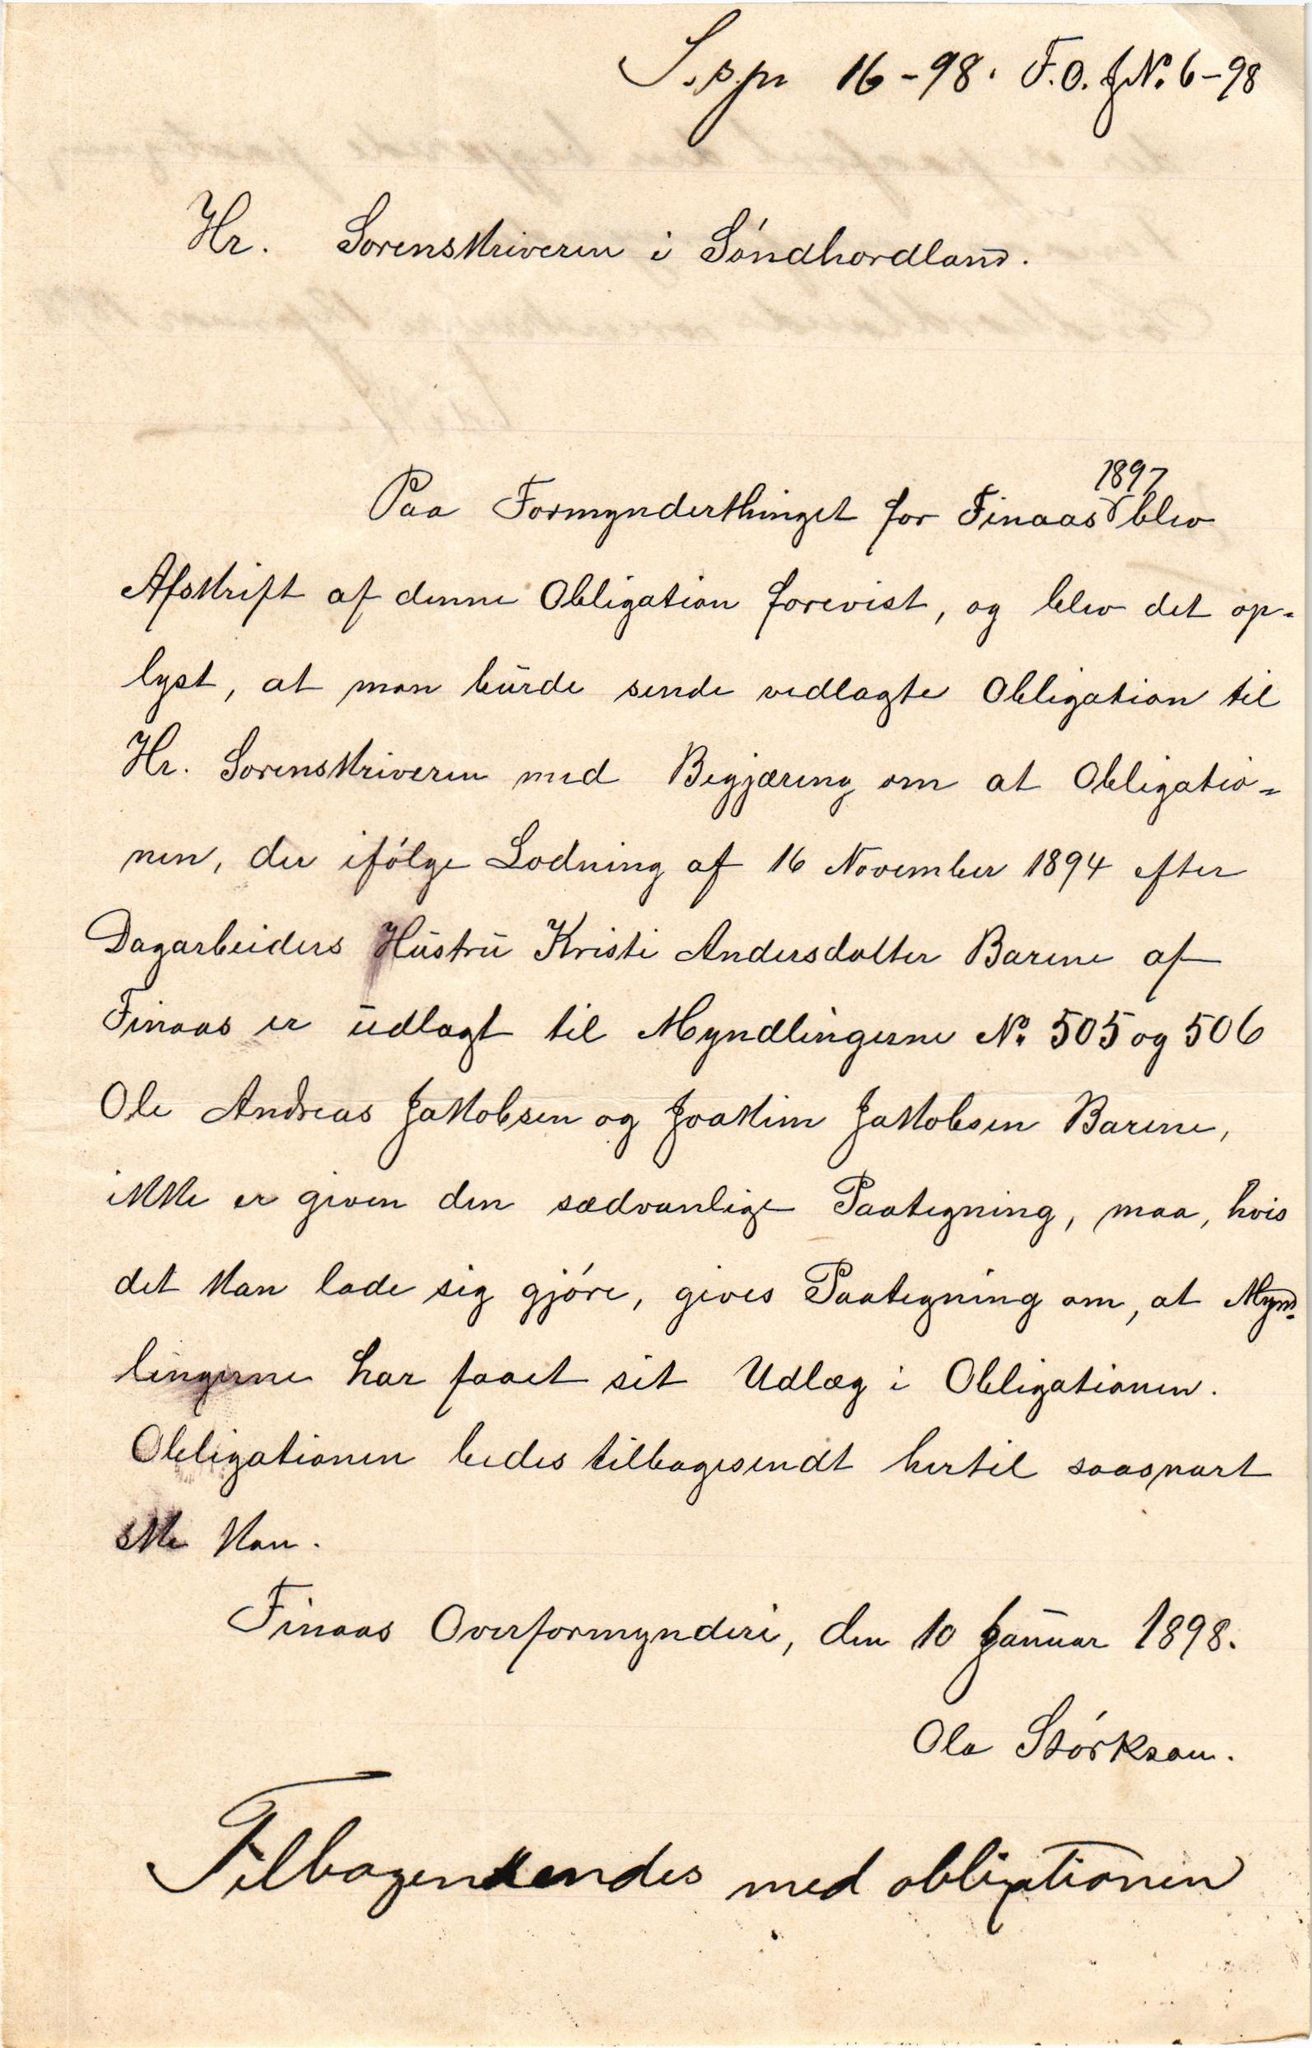 S.p.pr 16-98. F.O. J.No. 6-98
Hr. Sorenskriveren i Söndhordland.
1897
Paa Formynderthinget for Finaas blev
Afskrift af denne Obligation forevist, og blev det op-
lyst, at man burde sende vedlagte Obligation til
Hr. Sorenskriveren med Begjæring om at Obligatio-
nen, der ifölge Lodning af 16 November 1894 efter
Dagarbeiders Hustru Kristi Andersdatter Barene af
Finaas er udlagt til Myndlingerne No. 505 og 506
Ole Andreas Jakobsen og Joakim Jakobsen Barene,
ikke er given den sædvanlige Paategning, maa, hvis
det kan lade sig gjöre, gives Paategning om, at Mynd-
lingerne har faaet sit Udlæg i Obligationen.
Obligationen bedes tilbagesendt hertil saasnart
ske kan.
Finaas Overformynderi, den 10 Januar 1898.
Ola Störkson.
med obligationen